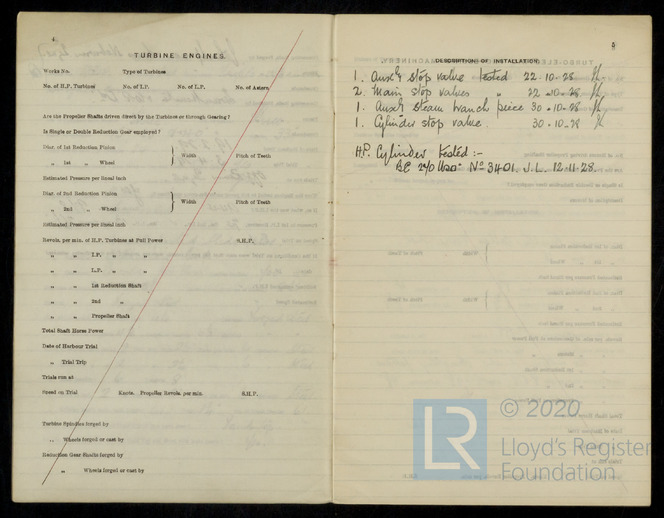 4
TURBINE ENGINES.
Works No. Type of Turbines
No. of H.P. Turbines No. of I.P. No. of L.P. No. of Astern
Are the Propeller Shafts driven direct by the Turbines or through Gearing?
Is Single or Double Reduction Gear employed?
Diar. of 1st Reduction Pinion
„ 1st „ Wheel } Width Pitch of Teeth
Estimated Pressure per lineal inch
Diar. of 2nd Reduction Pinion
„ 2nd „ Wheel } Width Pitch of Teeth
Estimated Pressure per lineal inch
Revols. per min. of H.P. Turbines at Full Power S.H.P.
„ „ I.P. „ „
„ „ L.P. „ „
„ „ 1st Reduction Shaft
„ „ 2nd „
„ „ Propeller Shaft
Total Shaft Horse Power
Date of Harbour Trial
„ Trial Trip
Trials run at
Speed on Trial Knots. Propeller Revols. per min. S.H.P.
Turbine Spindles forged by
„ Wheels forged or cast by
Reduction Gear Shafts forged by
„ Wheels forged or cast by
5
DESCRIPTION OF INSTALLATION.
1. Auxly stop valve tested 22.10.28
2. Main stop valves „ 22.10.28
1. Auxly steam branch peice 30.10.28
1. Cylinder stop valve. 30.10.28
H.P. Cylinder tested :-
No 3401. J.L. 12.11.28.
LR
© 2020
Lloyd's Register
Foundation